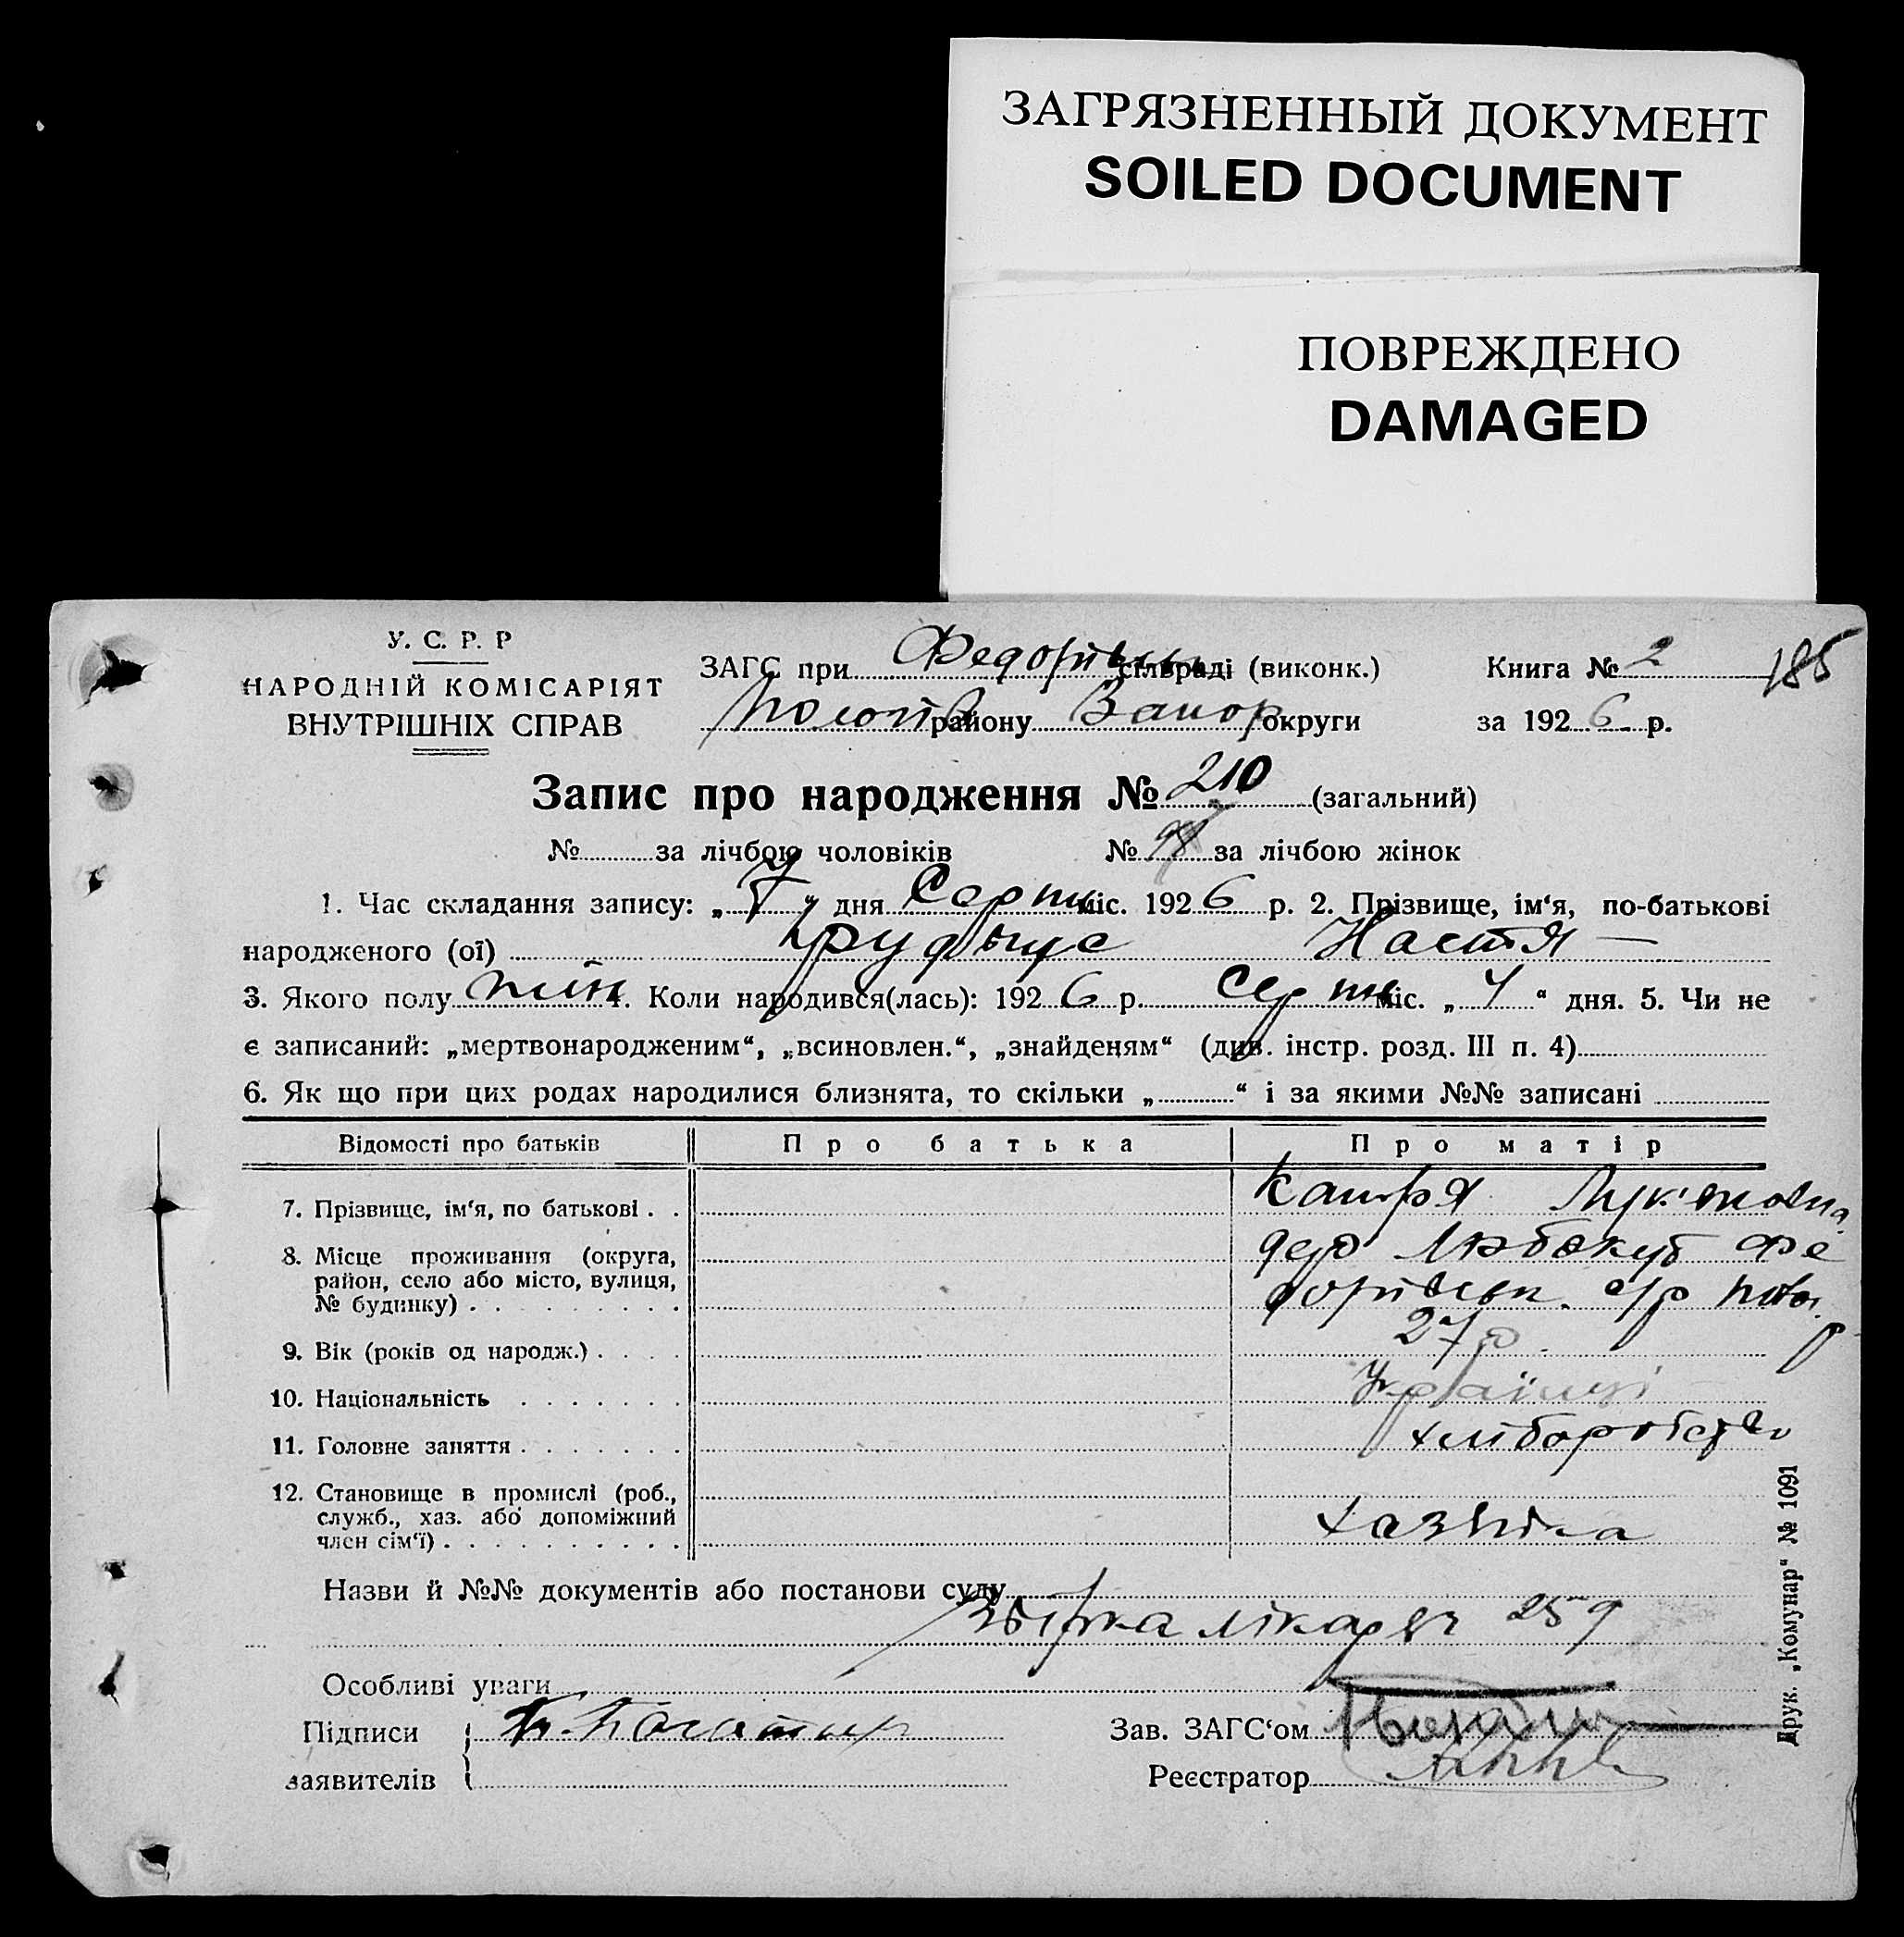 ЗАГРЯЗНЕННЫЙ ДОКУМЕНТ
SOILED DOCUMENT
ПОВРЕЖДЕНО
DAMAGED
У. С. Р. Р
НАРОДНІЙ КОМІСАРІЯТ
ВНУТРІШНІХ СПРАВ
ЗАГС при Федорівськ сільраді (виконк.) Книга № 2 185
району Запор округи за 1926 р.
Запис про народження № 210 (загальний)
№ за лічбою чоловіків № 98 за лічбою жінок
1. Час складання запису: „7“ дня Серпн міс. 1926 р. 2. Прізвище, ім‘я, по-батькові
народженого (ої) Настя —
3. Якого полу жін 4. Коли народився(лась): 1926 р. Серпн міс. „4“ дня. 5. Чи не
є записаний: „мертвонародженим“, „всиновлен.“, „знайденям“ (див. інстр. розд. III п. 4)
6. Як що при цих родах народилися близнята, то скільки „ “ і за якими №№ записані
Відомості про батьків Про батька Про матір
7. Прізвище, ім‘я, по батькові . . Катря Лук'яновна
8. Місце проживання (округа,
район, село або місто, вулиця,
№ будинку) . . . . . . . . .
дер Фе
дорівськ. с/р
9. Вік (років од народж.) . . . . 27 р.
10. Національність . . . . . . . Українці
11. Головне заняття . . . . . . . хліборобство
12. Становище в промислі (роб.,
служб., хаз. або допоміжний
член сім‘ї) . . . . . . . . . .
хазяйка
Назви й №№ документів або постанови суду
лікаря 259
Особливі уваги
Підписи Богатир
заявителів
Зав. ЗАГС‘ом
Реєстратор
Друк. „Комунар“ № 1091